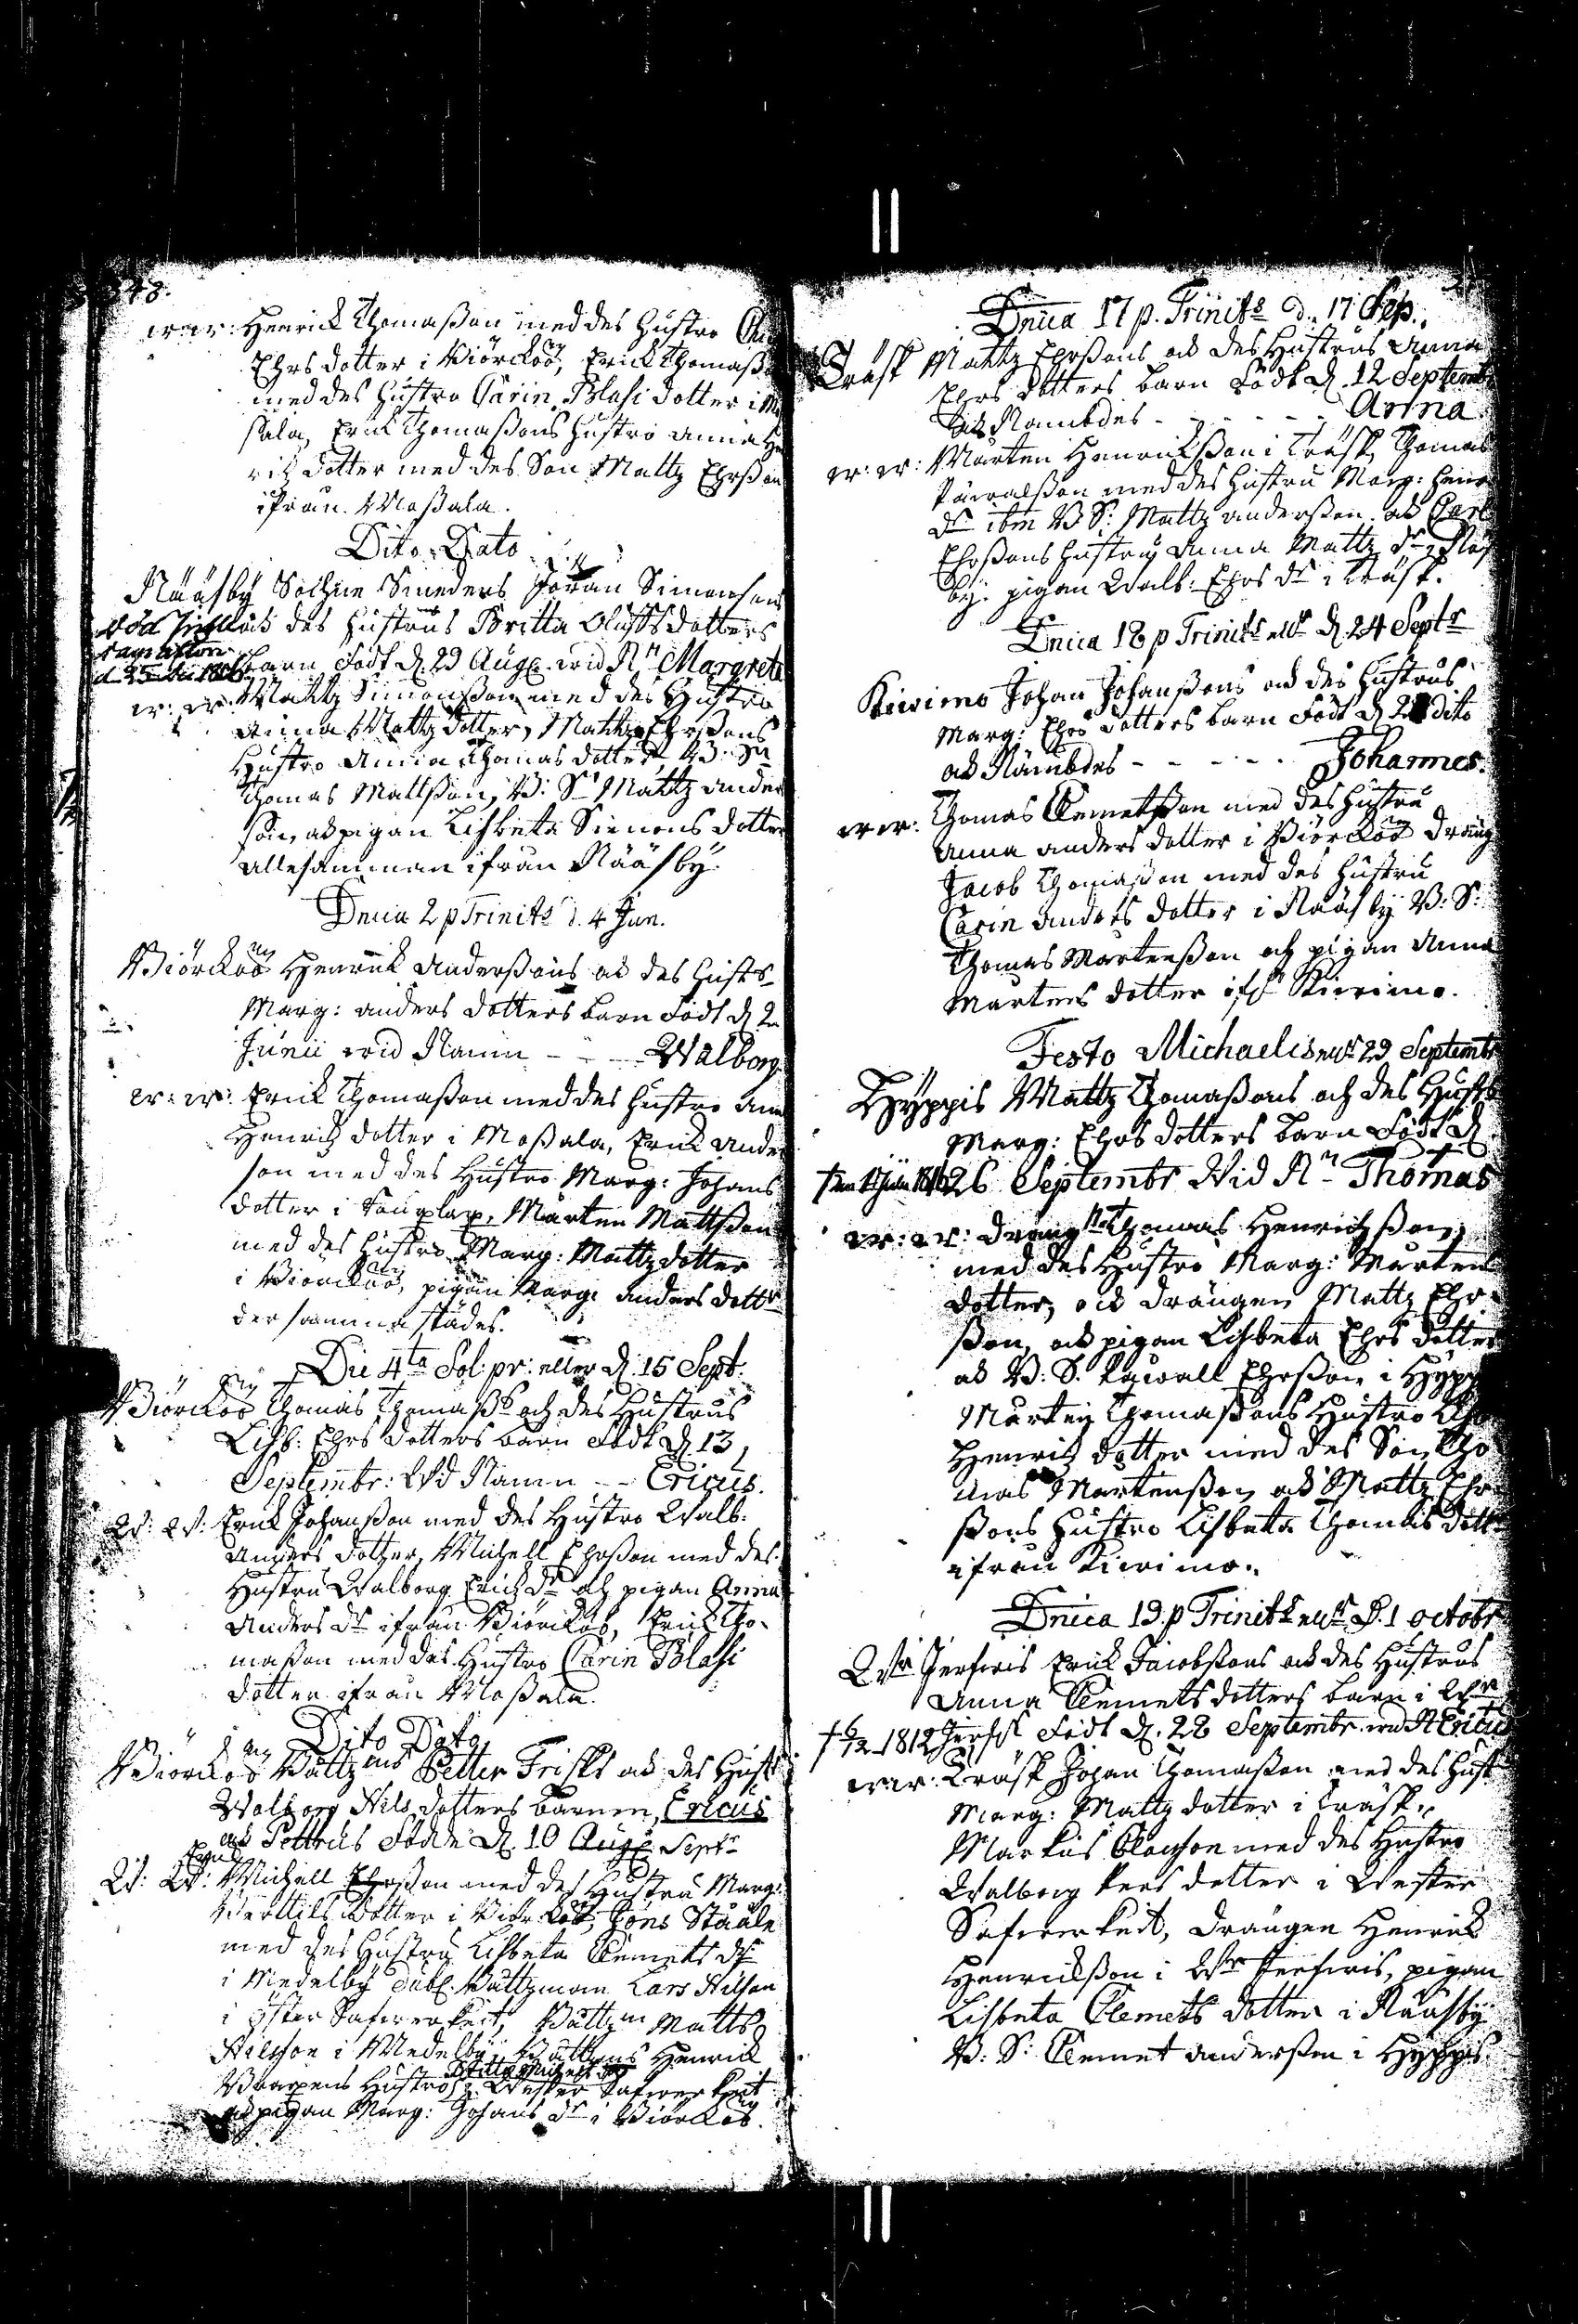 348.
w:w: Henrick Thomaßon med des Hustro
Ehrs dotter i Biörcköö, Erick Thomaß
med des Hustro Carin Blasi dotter i
sala, Erick Thomaßons Hustro Anna He
richz dotter med des Son Mattz Ehrßon
ifrån Moßala.
Dito Dato
Nääsby Sochne Smeders Jöran Simonsons
och des Hustrus Britta Oluffs dotters
barn Födt d. 29 Aug. wid Nn Margreta
w: w: Mattz Simonßon med des Hustro
Anna Mattz dotter, Mattz Ehrßons
Hustro Anna Thomas dotter U. Sn
Thomas Mattßon, U: Sn Mattz Anders
son, och pigan Lisbeta Simons dotter
allesamman ifrån Nääsby.
Dnica 2 p Trinits d. 4 Jun.
Biörcköö Henrick Anderßons och des Hustrs
Marg: Anders dotters barn Födt d. 2
Junii wid Namn - - - Walborg
w: w: Erick Thomaßon med des Hustro Anna
Henrichz dotter i Moßala, Erick Anders
son med des Hustro Marg: Johans
dotter i Långlax, Mårten Mattßon
med des Hustro Marg: Mattz dotter
i Biörcköö, pigan Marg: Anders dottr
dersammastädes.
Die 4ta Sol: pr: eller d. 15 Sept.
Biörcköö Thomas Thomaßs och des Hustrus
Lisb: Ehrs dotters barn Födt d. 13
Septembr: Wd Namn - - Ericus.
W: W: Erick Johanßon med des Hustro Walb:
Anders dotter, Michell Ehrßon med des
Hustru Walborg Erichz dr och pigan Anna
Anders dr ifrån Biörcköö, Erick Tho-
maßon med des Hustro Carin Blasi
dotter ifrån Moßala.
Dito Dato
Biörcköö Båttzms Petter Frisks och des Hust
Walborg Nils dotters barnen, Ericus
och Pettrus Födde d. 10 Aug. Septr
W: W: Michell Ehrßon med des Hustru Marg:
Bertills dotter i Biörcköö, Jöns Ståale
med des Hustru Lisbeta Clemets dr
i Medelby Båttzman Lars Nilson
i Öster Saferkeit, Båttzm Matts
Nilsson i Medelby, Båttzms Henrich
Braxens Hustro Britta Michels dr i Wester Saferkeit
och pigan Marg: Johans dr i Biörcköö.
Dnica 17 p. Trinits d. 17 Sep.
Träsk Mattz Ehrßons och des Hustrus Anna
Ehrs dotters barn Födt d. 12 Septemb
och Nämbdes - - - - - Anna
w: w: Mårten Henrickßon i Träsk, Thomas
Påwalßon med des Hustru Marg: Henr
dr ibm U S: Mattz Anderßon och Carl
Ehrßons Hustru Anna Mattz dr i Nääs
by. pigan Walb: Ehrs dr i Träsk.
Dnica 18 p Trinits ellr d. 24 Septr
Kiwimo Johan Johanßons och des Hustrus
Marg: Ehrs dotters barn Födt d. dito
och Nämbdes - - - - - Johannes.
w w: Thomas Clemetßon med des Hustru
Anna Anders dotter i Biörckö Dräng
Jacob Thomaßon med des Hustru
Carin Anders dotter i Nääsby U: S:
Thomas Mårtenßon och pigan Anna
Mårtens dotter ifr Kiwimo.
Festo Michaelis ellr 29 Septembr
Hyppis Mattz Thomaßons och des Hustr
Marg: Ehrs dotters barn Födt d.
26 Septembr Wid Nn Thomas
w: w: Dräng Thomas Henrichßon
med des Hustro Marg: Mårtens
dotter, och Drängen Mattz Ehr
ßon, och pigan Lisbeta Ehrs dotter
och U: S. Påwall Ehrßon i Hypp
Mårten Thomaßons Hustro
Henrichz dotter med des Son Tho
mas Mårtenßon och Mattz Ehr
ßons Hustro Lisbeta Thomas dott
ifrån Kiwimo.
Dnica 19 p Trinits ellr d. 1 octobr
Wr Jerfwis Erick Jacobßons och des Hustrus
Anna Clemets dotters barn i Wr
† 6/12 1812 Jerfwis Födt d. 28 Septembr. wd N Ericus
w: w: Träsk Johan Thomaßon med des Hust
Marg: Mattz dotter i Träsk,
Markus Clawson med des Hustro
Walborg Pers dotter i Wester
Saferkeit, Drängen Henrich
Henrickßon i Wr Jerfwis, pigan
Lisbeta Clemets dotter i Nääsby
U: S: Clemet Anderßon i Hyppis.